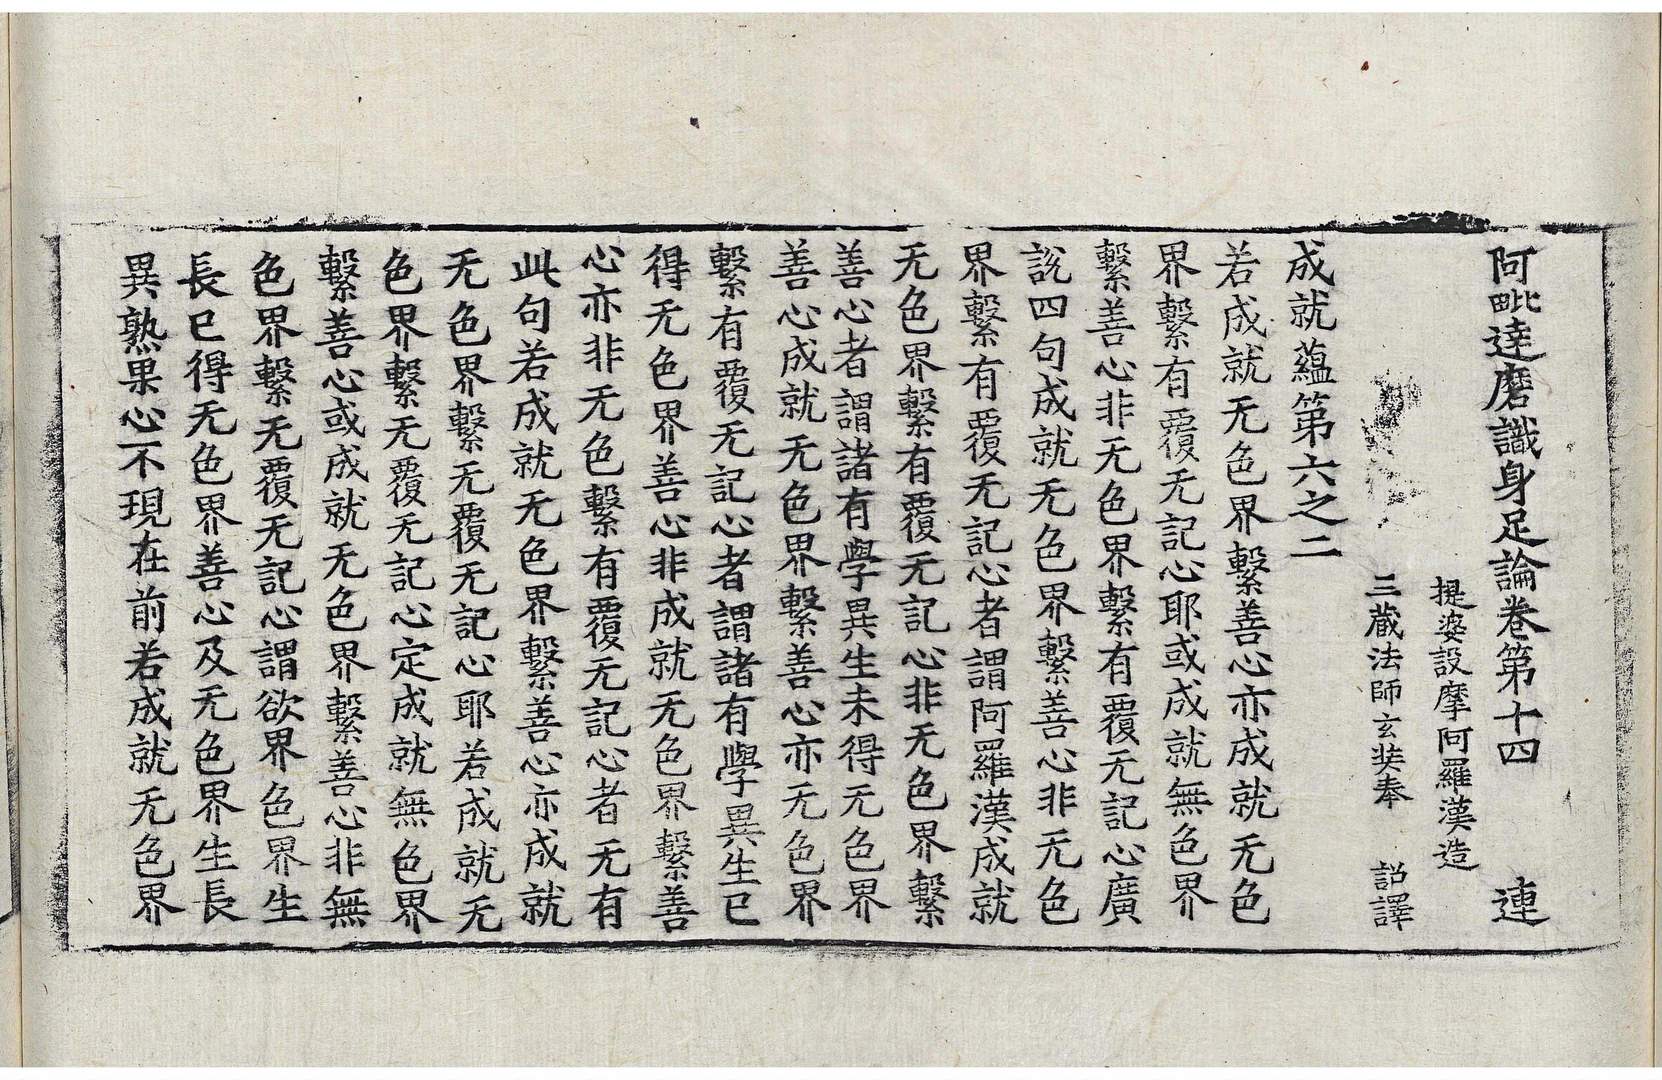 阿毗達磨識身足論卷第十四　連
提婆設摩阿羅漢造
三藏法師玄奘奉　詔譯
成就蘊第六之二
若成就无色界繫善心亦成就无色
界繫有覆无記心耶或成就無色界
繫善心非无色界繫有覆无記心廣
說四句成就无色界繫善心非无色
界繫有覆无記心者謂阿羅漢成就
无色界繫有覆无記心非无色界繫
善心者謂諸有學異生未得无色界
善心成就无色界繫善心亦无色界
繫有覆无記心者謂諸有學異生已
得无色界善心非成就无色界繫善
心亦非无色繫有覆无記心者无有
此句若成就无色界繫善心亦成就
无色界繫无覆无記心耶若成就无
色界繫无覆无記心定成就無色界
繫善心或成就无色界繫善心非無
色界繫无覆无記心謂欲界色界生
長已得无色界善心及无色界生長
異熟果心不現在前若成就无色界